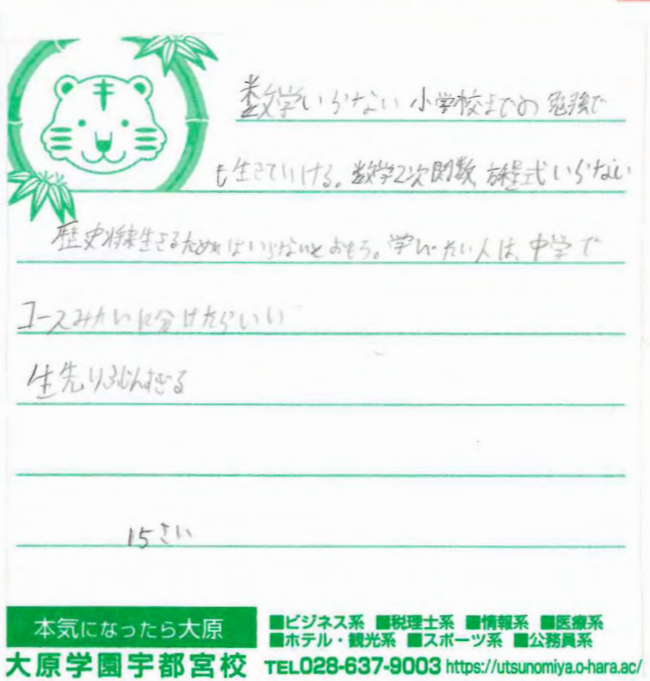 数学いらない 小学校までの勉強で
も生きていける。数学2次関数、方程式いらない
歴史将来生きるためにはいらないとおもう。学びたい人は、中学で
コースみたいに分けたらいい
生先りふじんすぎる
15さい
本気になったら大原
■ビジネス系 ■税理士系 ■情報系 ■医療系
■ホテル・観光系 ■スポーツ系 ■公務員系
大原学園宇都宮校 TEL028-637-9003 https://utsunomiya.o-hara.ac/